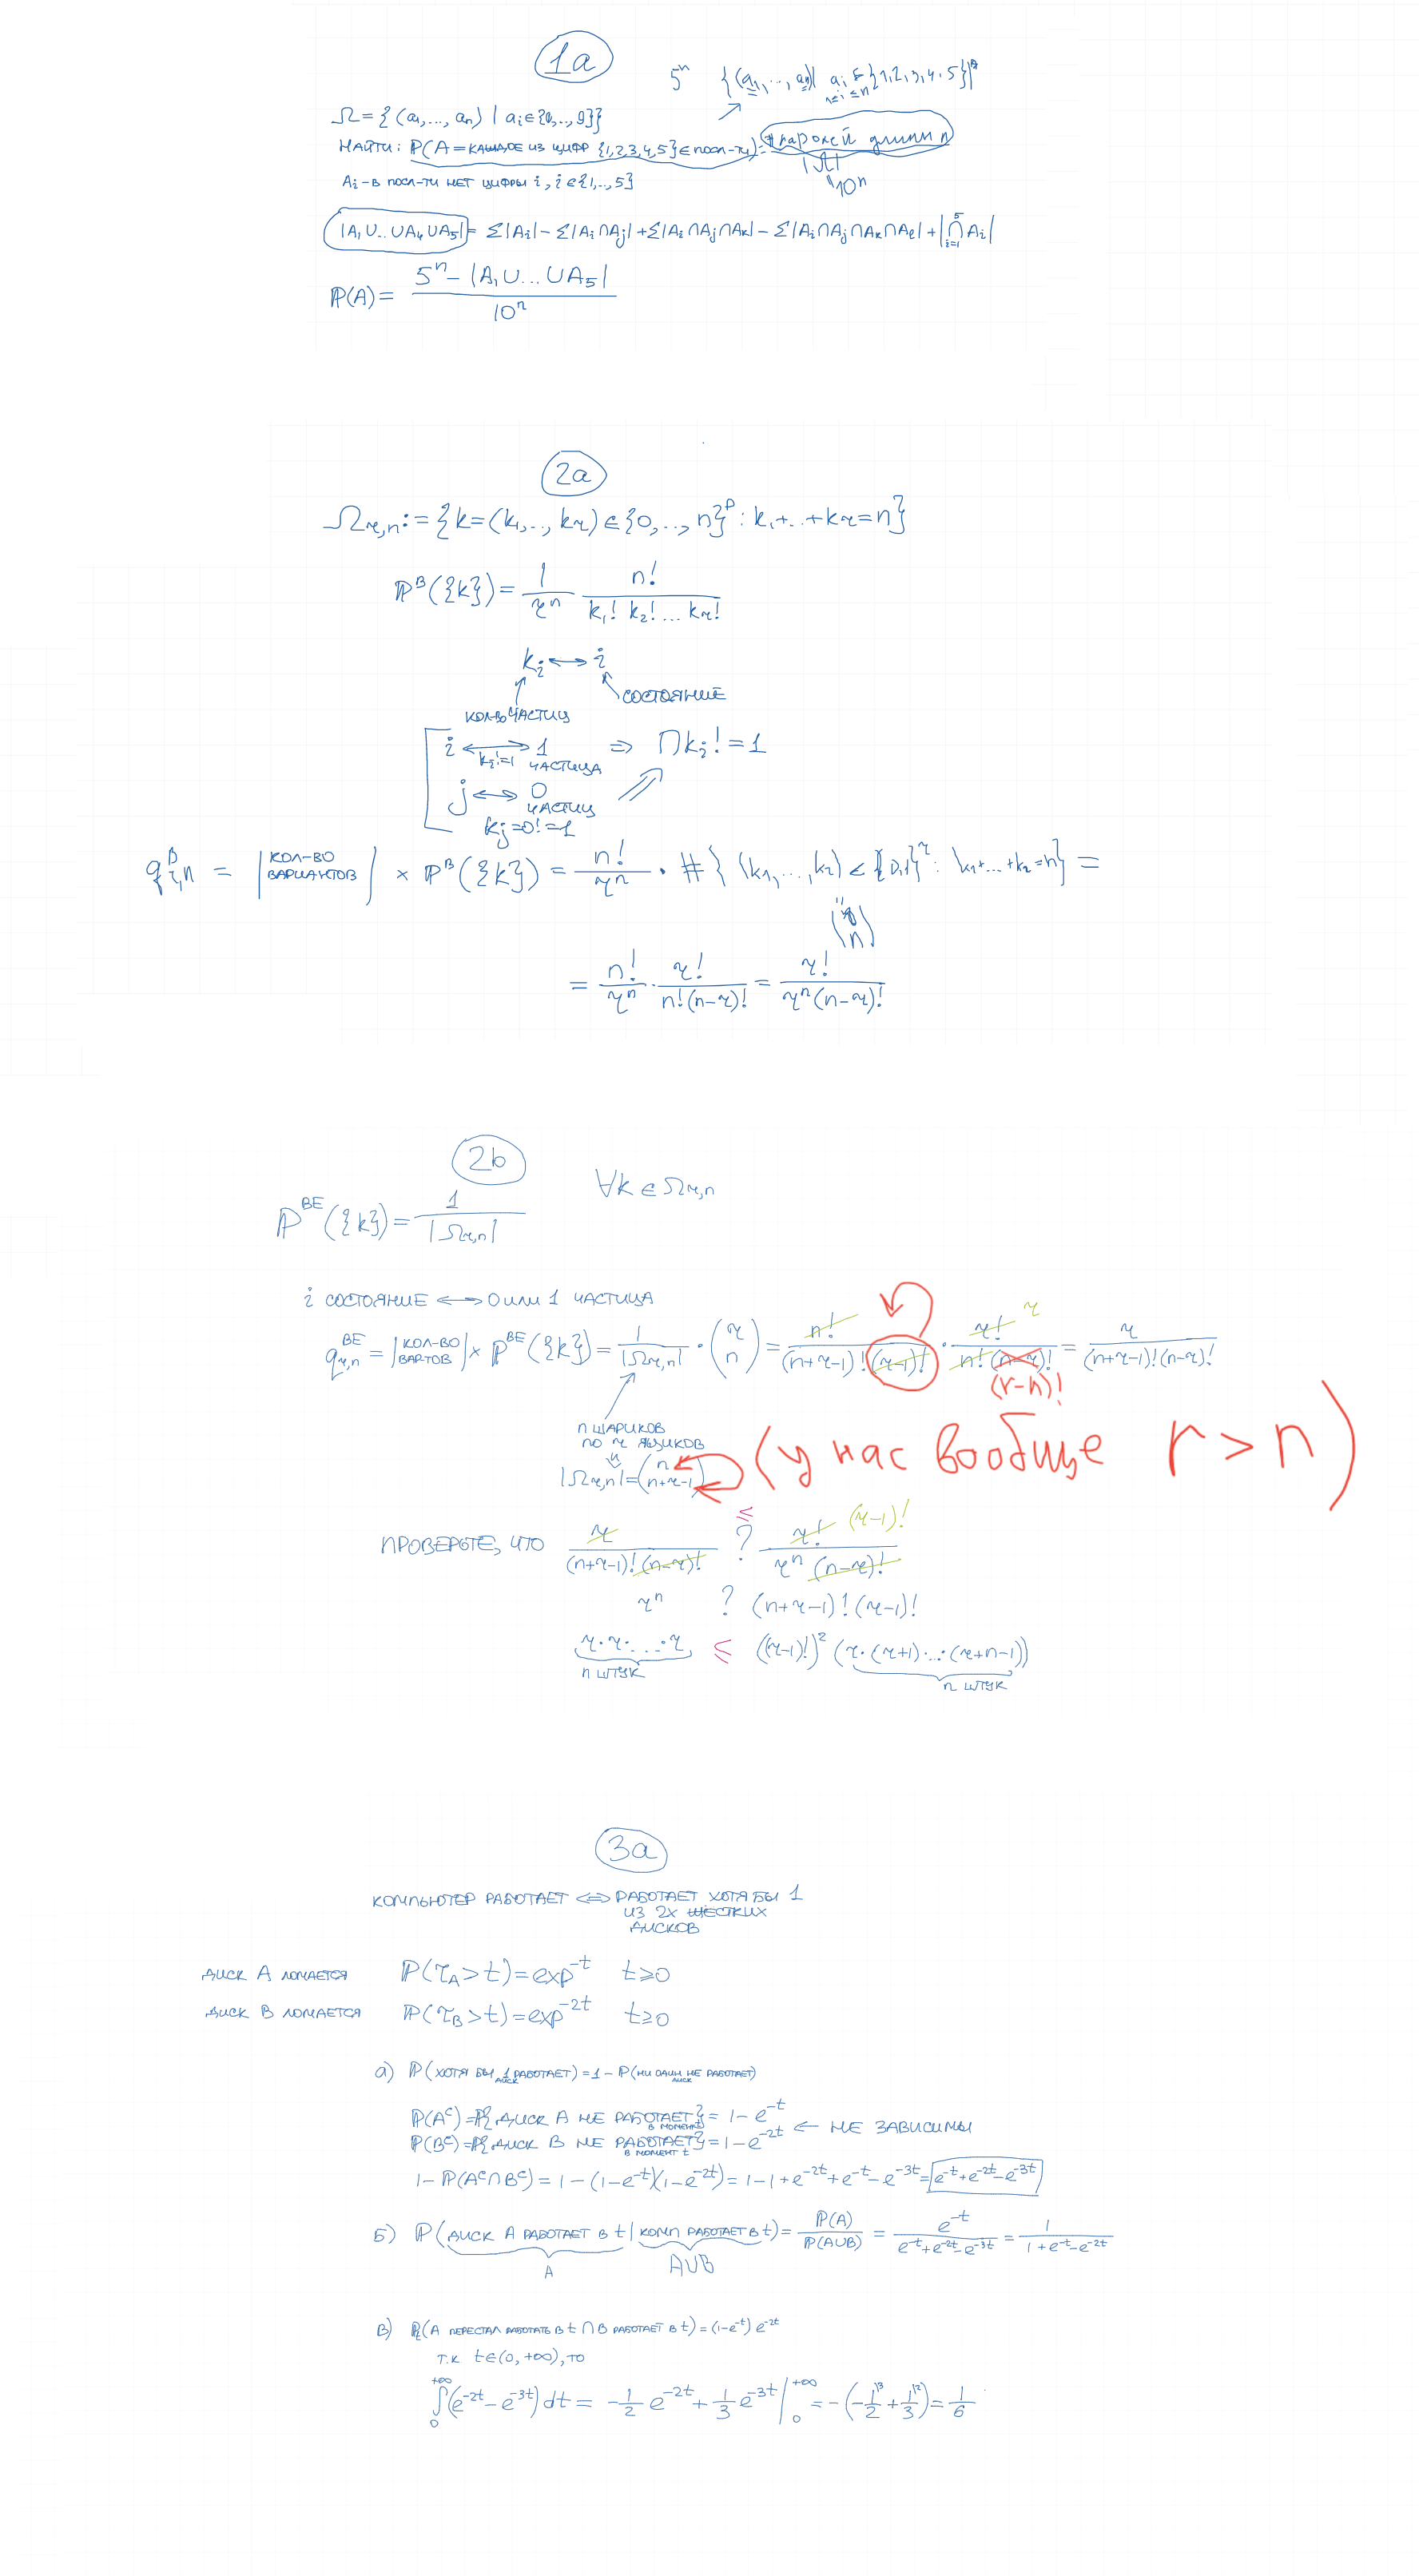 1a
5ⁿ {(a₁,..,aₙ)| aᵢ ∈ {1,2,3,4,5}}
1≤i≤n
Ω = {(a₁,...,aₙ) | aᵢ∈{0,..,9}}
НАЙТИ: ℙ(A = КАЖДОЕ ИЗ ЦИФР {1,2,3,4,5} ∈ посл-ти) = #паролей длины n
|Ω|
10ⁿ
Aᵢ - В ПОСЛ-ТИ НЕТ ЦИФРЫ i, i∈{1,..,5}
|A₁∪..∪A₄∪A₅| = Σ|Aᵢ| - Σ|Aᵢ∩Aⱼ| + Σ|Aᵢ∩Aⱼ∩Aₖ| - Σ|Aᵢ∩Aⱼ∩Aₖ∩Aₗ| + |⋂ᵢ₌₁⁵ Aᵢ|
ℙ(A) = (5ⁿ - |A₁∪...∪A₅|) / 10ⁿ
2a
Ω_{r,n} := {k=(k₁,..,k_r) ∈ {0,..,n}^r : k₁+..+k_r=n}
ℙᴮ({k}) = 1/rⁿ n!/(k₁! k₂! ... k_r!)
kᵢ ↔ i
СОСТОЯНИЕ
КОЛ-ВО ЧАСТИЦ
i ↔ 1 ⇒ ∏kᵢ! = 1
kᵢ!=1 ЧАСТИЦА
j ↔ 0
ЧАСТИЦ
kⱼ=0!=1
qᴮ_{r,n} = |КОЛ-ВО ВАРИАНТОВ| × ℙᴮ({k}) = n!/rⁿ · #{(k₁,...,k_r) ∈ {0,1}^r : k₁+...+k_r=n} =
(r n)
= n!/rⁿ · r!/(n!(n-r)!) = r!/(rⁿ(n-r)!)
2b
ℙᴮᴱ({k}) = 1/|Ω_{r,n}| ∀k∈Ω_{r,n}
i СОСТОЯНИЕ ↔ 0 ИЛИ 1 ЧАСТИЦА
qᴮᴱ_{r,n} = |КОЛ-ВО ВАР-ТОВ| × ℙᴮᴱ({k}) = 1/|Ω_{r,n}| · (r n) = n!/((n+r-1)!(r-1)!) · r!/(n!(n-r)!) = r/((n+r-1)!(n-r)!)
r
(r-n)!
n ШАРИКОВ
ПО r ЯЩИКОВ
(у нас вообще r > n)
|Ω_{r,n}| = (n n+r-1)
ПРОВЕРЬТЕ, ЧТО r/((n+r-1)!(n-r)!) ≤ ? r!/(rⁿ(n-r)!) (r-1)!
rⁿ ? (n+r-1)!(r-1)!
r·r·...·r ≤ ((r-1)!)² (r·(r+1)·...·(r+n-1))
n ШТУК n ШТУК
3a
КОМПЬЮТЕР РАБОТАЕТ ⇔ РАБОТАЕТ ХОТЯ БЫ 1
ИЗ 2Х ЖЕСТКИХ
ДИСКОВ
ДИСК A ЛОМАЕТСЯ ℙ(τ_A>t)=exp^{-t} t≥0
ДИСК B ЛОМАЕТСЯ ℙ(τ_B>t)=exp^{-2t} t≥0
а) ℙ(ХОТЯ БЫ 1 ДИСК РАБОТАЕТ) = 1 - ℙ(НИ ОДИН ДИСК НЕ РАБОТАЕТ)
ℙ(Aᶜ)=ℙ{ДИСК A НЕ РАБОТАЕТ В МОМЕНТ t} = 1 - e^{-t}
← НЕ ЗАВИСИМЫ
ℙ(Bᶜ)=ℙ{ДИСК B НЕ РАБОТАЕТ В МОМЕНТ t} = 1 - e^{-2t}
1-ℙ(Aᶜ∩Bᶜ) = 1-(1-e^{-t})(1-e^{-2t}) = 1-1+e^{-2t}+e^{-t}-e^{-3t} = e^{-t}+e^{-2t}-e^{-3t}
Б) ℙ(ДИСК A РАБОТАЕТ В t | КОМП РАБОТАЕТ В t) = ℙ(A)/ℙ(A∪B) = e^{-t}/(e^{-t}+e^{-2t}-e^{-3t}) = 1/(1+e^{-t}-e^{-2t})
A A∪B
В) ℙ(A ПЕРЕСТАЛ РАБОТАТЬ В t ∩ B РАБОТАЕТ В t) = (1-e^{-t})e^{-2t}
Т.К t∈(0,+∞), ТО
∫₀^{+∞}(e^{-2t}-e^{-3t})dt = -1/2 e^{-2t} + 1/3 e^{-3t} |₀^{+∞} = -(-1/2^{\3} + 1/3^{\2}) = 1/6